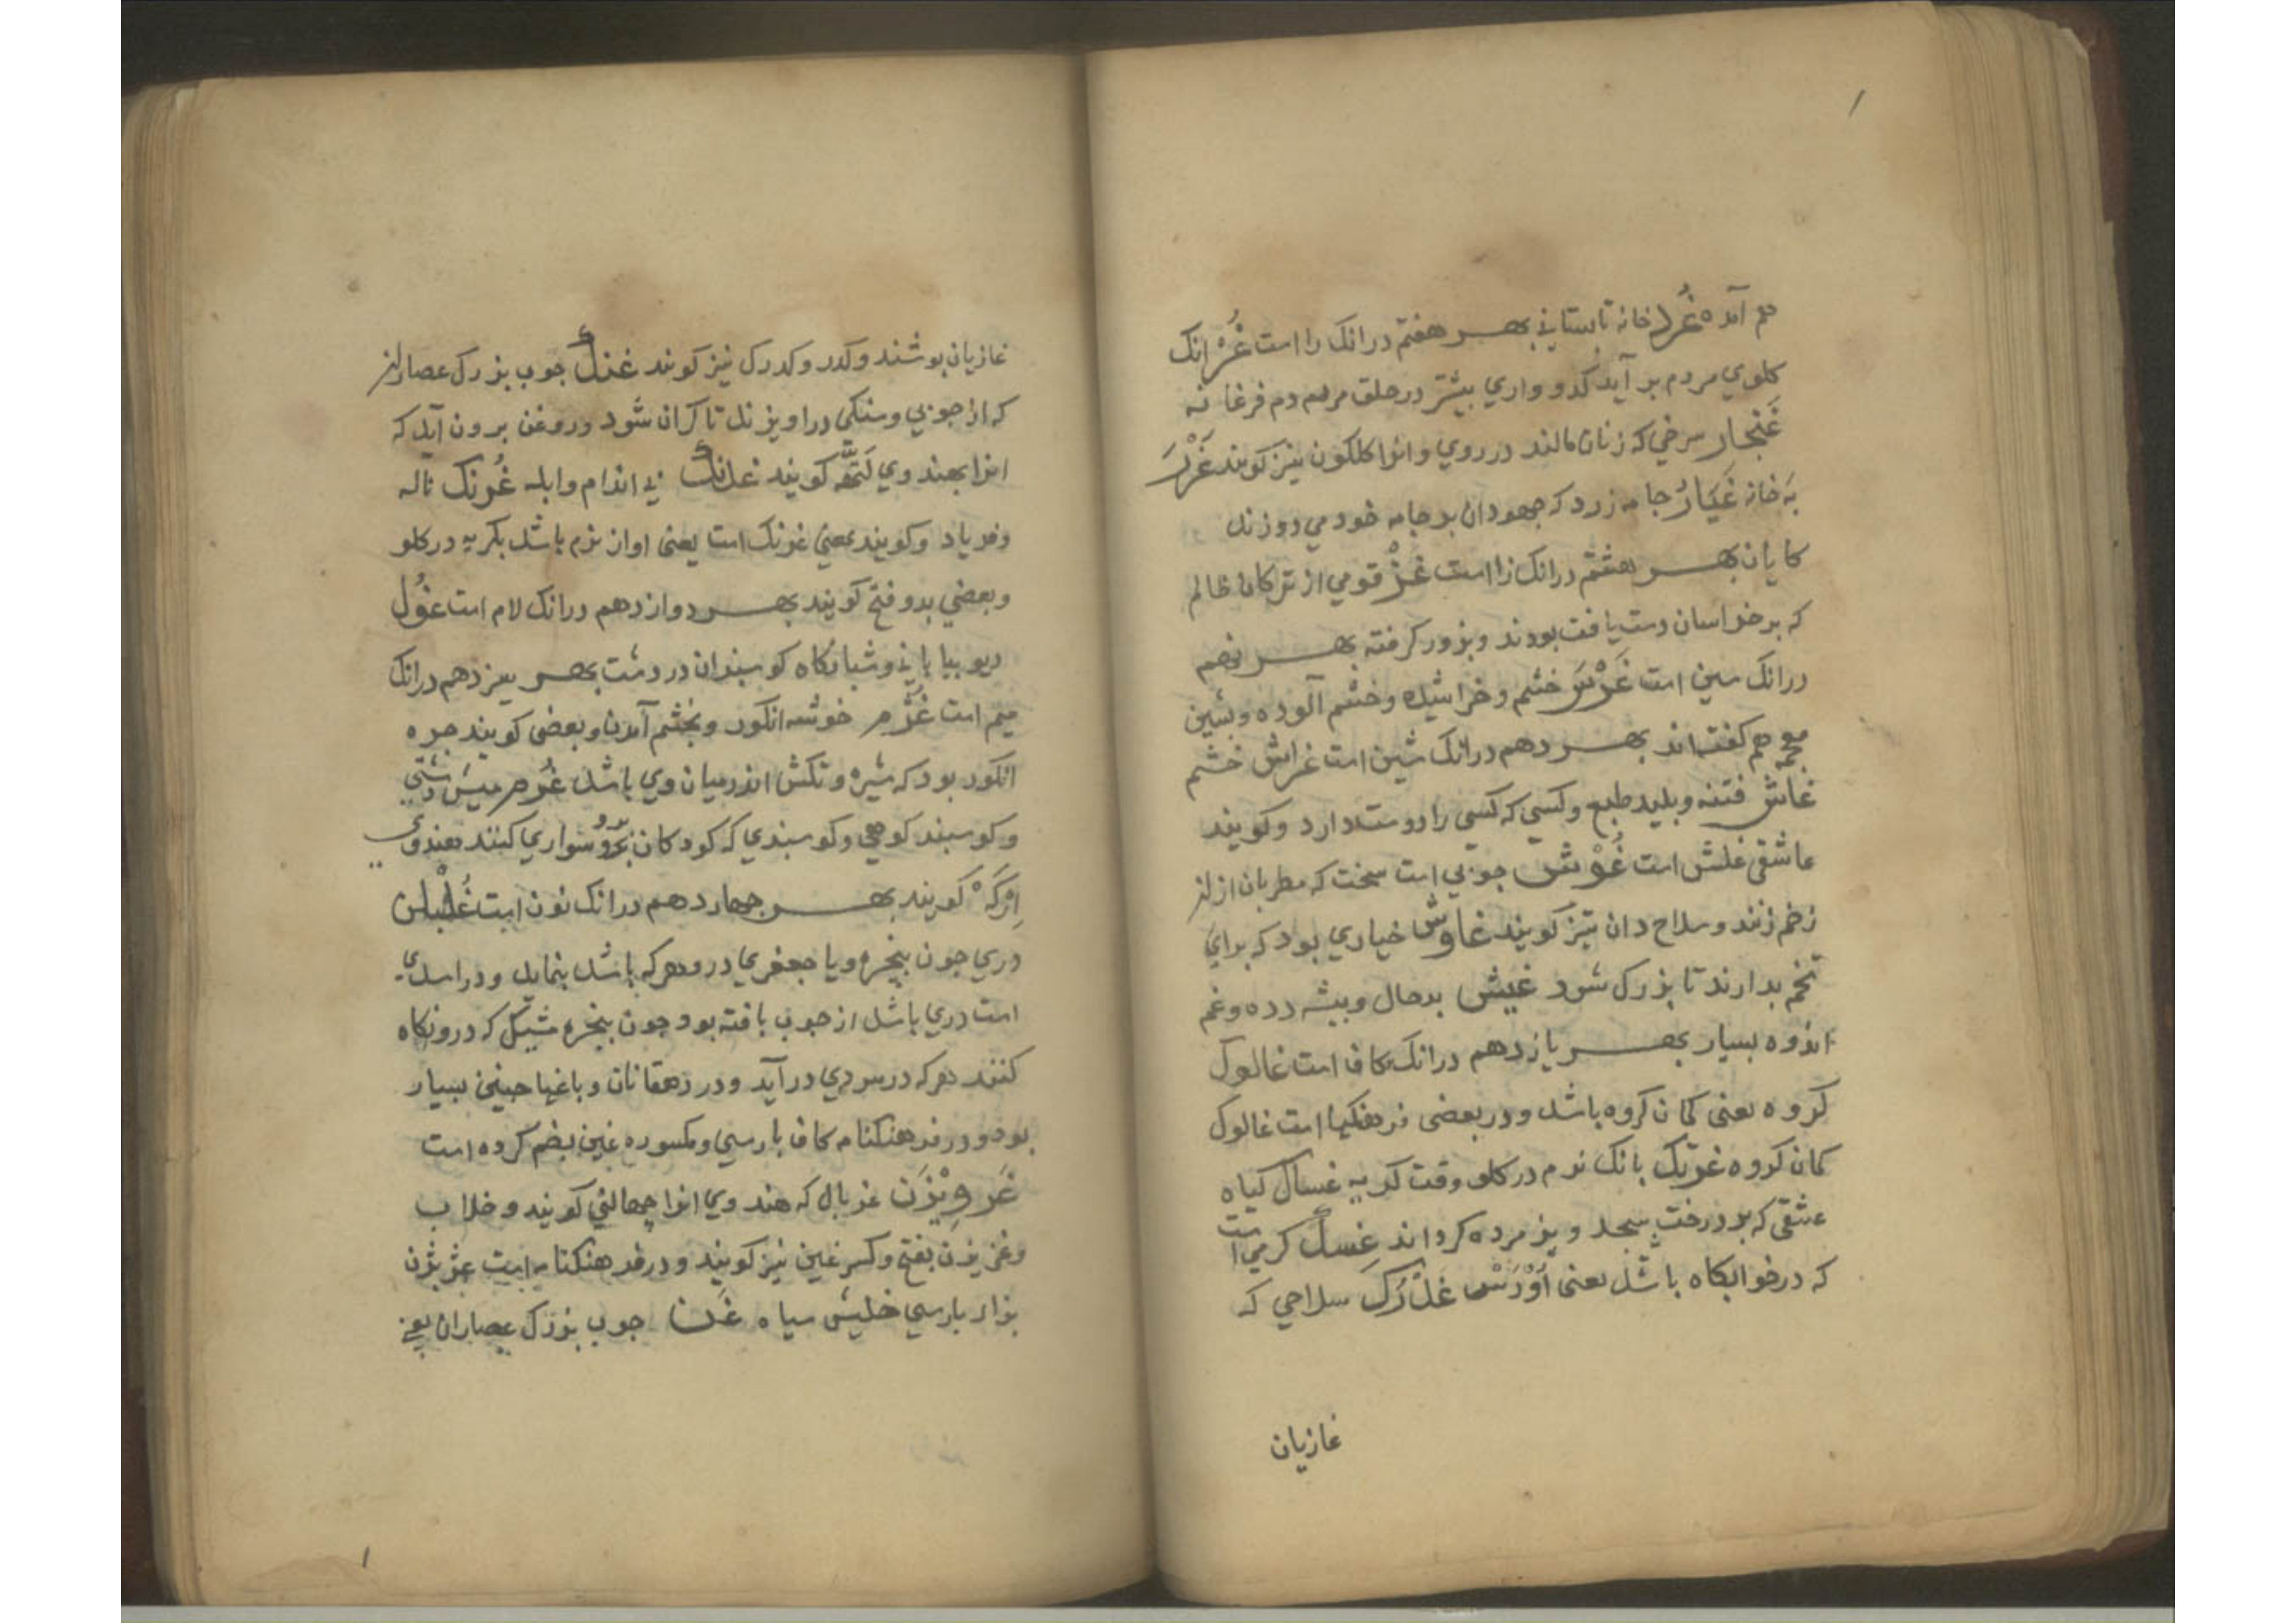 هم آمده غُرد خانه تابستاني بهر هفتم درانک را است غُر انک
کلوي مردم بر آيد کدو واري بيشتر در حلق مردم دم فرغانه
غَنجار سرخي که زنان مالند در روي و انرا کلکون نيز کويند غَرْ
به خانه غَيَارْ جامه زرد که جهودان بر جامه خود مي دوزند
کايان بهر هشتم درانک زا است غُز قومي از ترکان ظالم
که بر خراسان دست يافت بودند و بزور کرفته بهر نهم
درانک سين است غَرْس خشم و خراشيده و خشم آلوده و بشين
معجمه هم کفته اند بهر دهم درانک شين است غراش خشم
غاش فتنه و بليد طبع و کسي که کسي را دوست دارد و کويند
عاشقي غلش است غُوْش جوبي است سخت که مطربان از ان
زخم زنند و سلاح دان نيز کويند غاوش خياري بود که براي
تخم بدارند تا بزرک شود غيش بدحال و بيشه دده و غم
اندوه بسيار بهر يازدهم درانک کاف است غالوک
کروه يعني کمان کروه باشد و در بعضي فرهنکها است غالوک
کمان کروه غرنک بانک نرم در کلو وقت کريه غساک کياه
عشقي که بر درخت بيجد و بزمرده کرداند غِسک کرمي است
که در خوابکاه باشد يعني اَوْرَس غَدْرَک سلاحي که
غازيان
غازيان بوشند و کدر و کدرک نيز کويند غنک جوب بزرک عصاران
که از جوبي و سنکي دراويزند تا کران شود و روغن برون آيد که
انرا بهندوي لَتَّهه کويند غدنک بي اندام و ابله غُرنک ناله
و فرياد و کويند بمعني غرنک است يعني اواز نرم باشد بکريه در کلو
و بعضي بدو فتح کويند بهر دوازدهم درانک لام است غُول
ديو بياباني و شبانکاه کوسبندان در دشت بهر سيزدهم درانک
ميم است غُژم خوشه انکور و بخشم آمدن و بعضي کويند جره
انکور بود که شيره و تکش اندر ميان وي باشد غُرم ميش دشتي
و کوسبند کوهي و کوسبندي که کودکان برو سواري کنند بهندوي
کويند بهر جهاردهم درانک نون است غُلبکن
دري جون بنجره و يا جعفري در و هر که باشد بنمايد و در اسدي
است دري باشد از جوب بافته بود جون بنجره مشبک که درو نکاه
کنند هر که در سردي درآيد و در دهقانان و باغها جنين بسيار
بود و در فرهنکنامه کاف بارسي و مکسوره غين بضم کرده است
غَرويزَن غربال که هندوي انرا چهالني کويند و خلاب
و غريزن بفتح و کسر غين نيز کويند و در فرهنکنامه است غژيژن
بزاء بارسي خليش سياه غَن جوب بزرک عصاران يعني